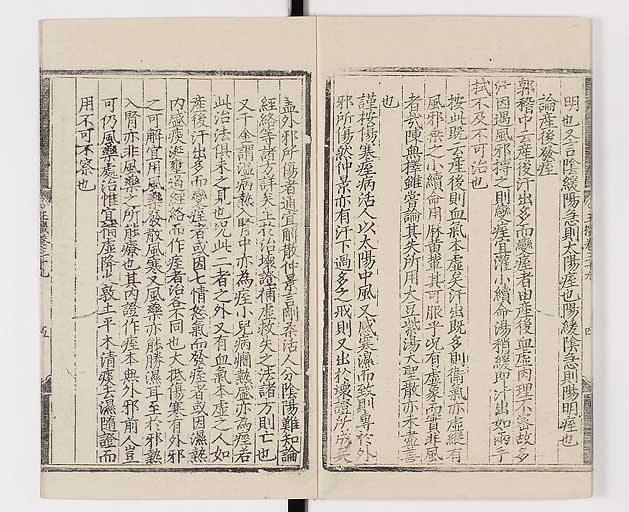 明也又言陰緩陽急則太陽痓也陽緩陰急則陽明痓也
論產後發痓
郭稽中云產後汗出多而變痓者由產後血虛肉理不密故多
汗因遇風邪搏之則變痓宜灌小續命湯稍緩即汗出如雨手
拭不及不可治也
按此既云產後則血氣本虛矣汗出既多則衛氣亦虛縱有
風邪乘之小續命用麻黃輩其可服乎況有虛象而實非風
者哉陳無擇雖嘗論其失所用大豆紫湯大聖散亦未盡善
也
謹按傷寒痓病活人以太陽中風又感寒濕而致則專於外
邪所傷然仲景亦有汗下過多之戒則又出於壞證所成矣
蓋外邪所傷者通宜解散仲景言剛柔活人分陰陽難知論
經絡等諸方詳矣至於治壞證補虛救失之法諸方則亡也
又千金謂溫病熱入腎中亦為痓小兒病癇熱盛亦為痓若
此治法俱未之見也況此二者之外又有血氣本虛之人如
產後汗出多而變痓者或因七情怒氣而發痓者或因濕熱
內盛痰涎壅遏經絡而作痓者治各不同也大抵傷寒有外邪
之可解宜用風藥發散風寒又風藥亦能勝濕耳至於邪熱
入腎亦非風藥之所能療也其內證作痓本無外邪前人豈
可仍風藥處治惟宜補虛降火敦土平木清痰去濕隨證而
用不可不察也